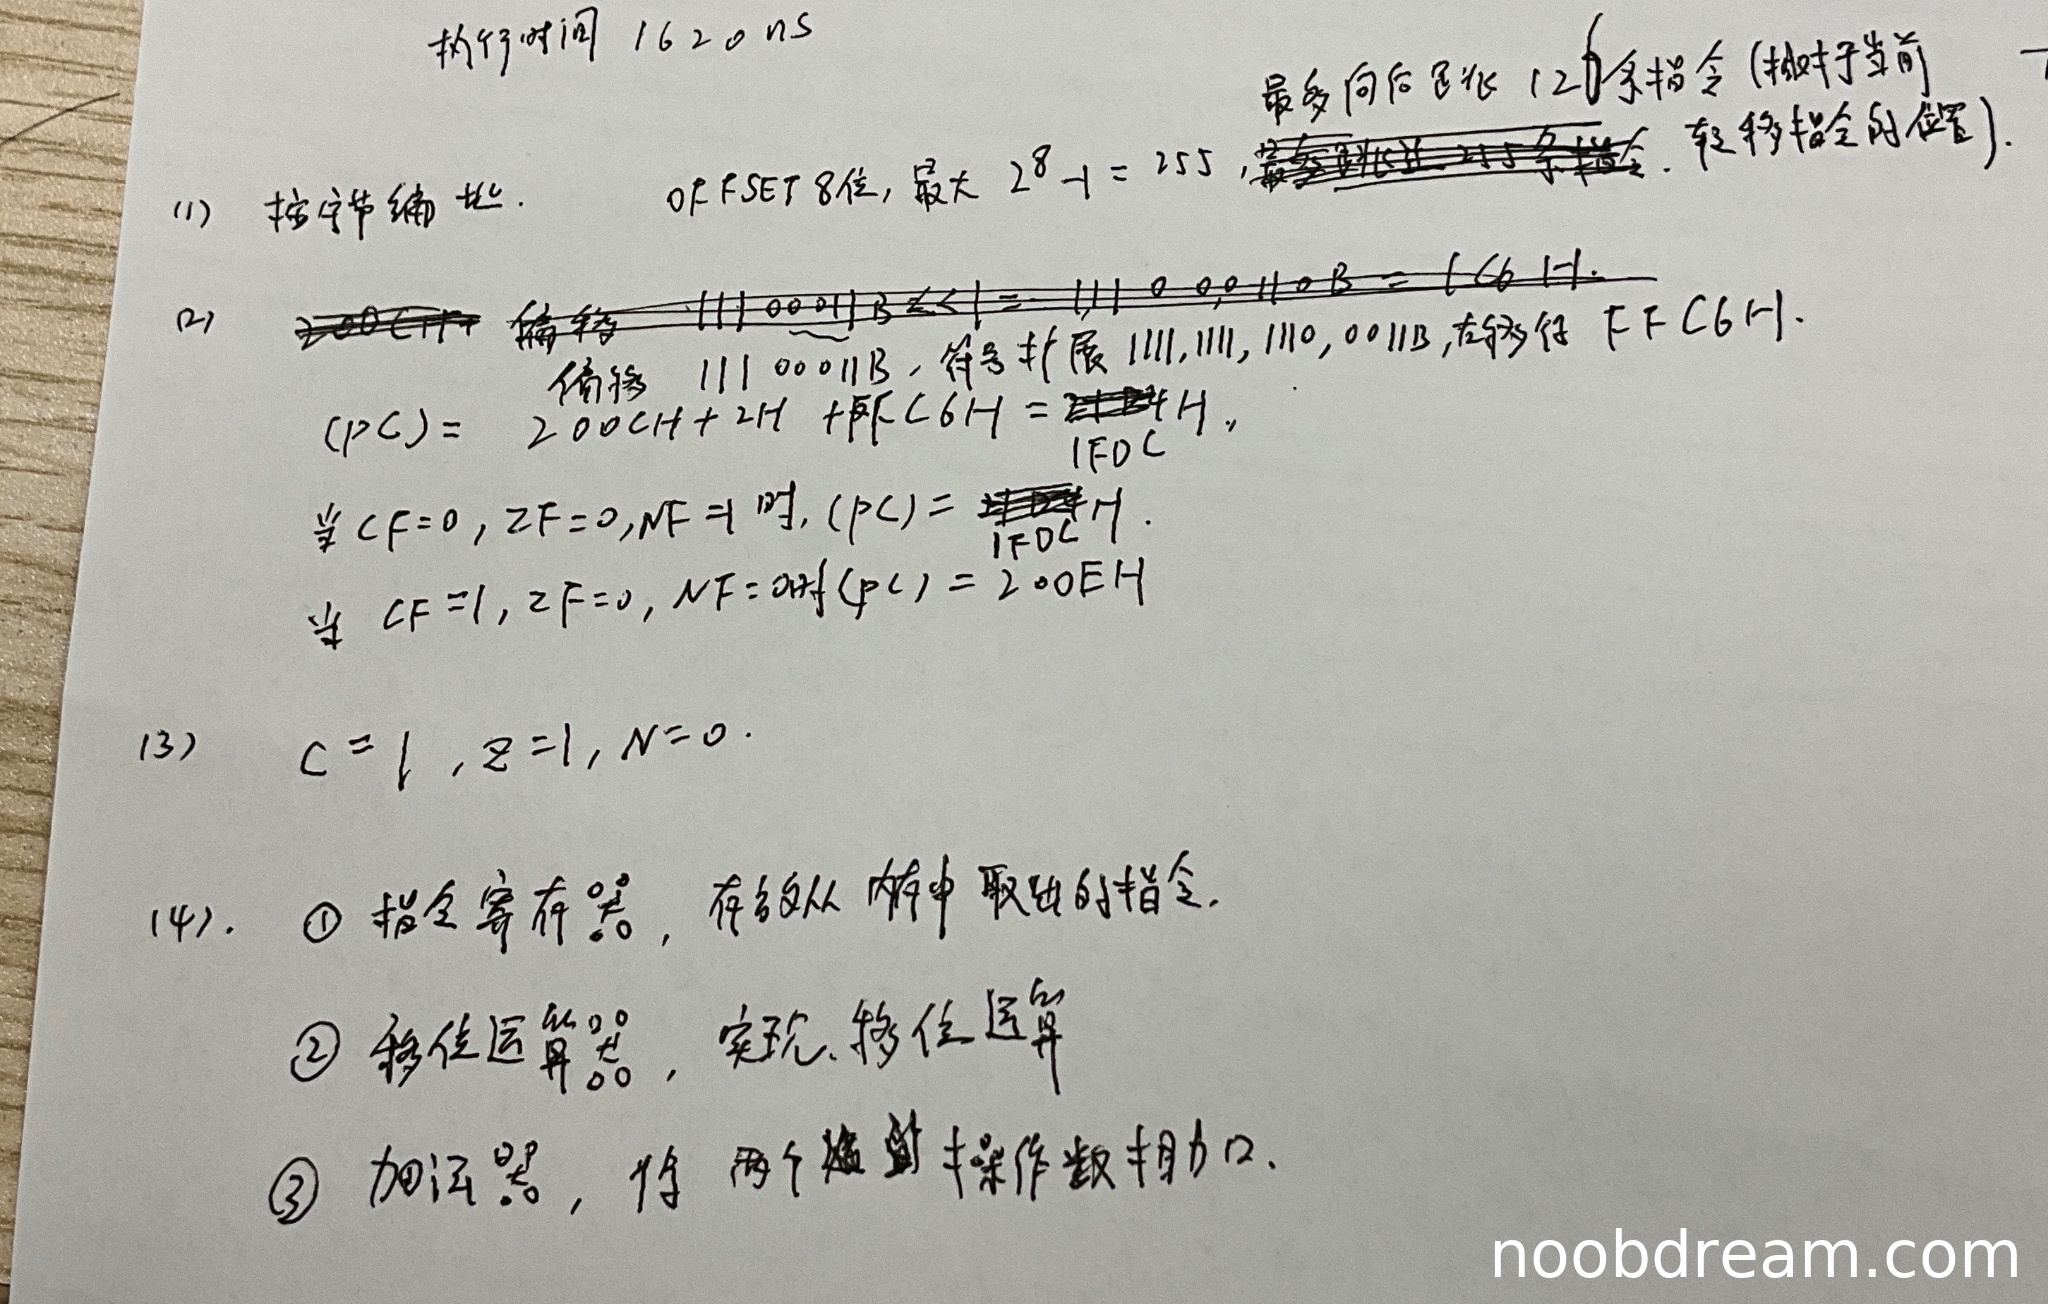 执行时间 1620ns
最多向后跳转 126条指令(相对于当前
转移指令的位置).
(1) 按字节编址. OFFSET 8位, 最大 2⁸-1 = 255,
(2) 偏移 1110 0011B << 1 = 111 0 0,0110B = 1C6H.
偏移 1110 0011B, 符号扩展 1111,1111,1110,0011B, 左移得 FFC6H.
(PC) = 200CH + 2H + FFC6H = H.
1FDC
当 CF=0, ZF=0, NF=1 时, (PC) = H.
1FDC
当 CF=1, ZF=0, NF=0时 (PC) = 200EH
(3) C=1, Z=1, N=0.
(4). ① 指令寄存器, 存放从内存中取出的指令.
② 移位运算器, 实现移位运算
③ 加法器, 将两个操作数相加.
noobdream.com